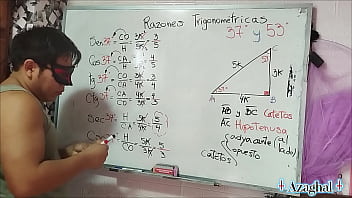 Razones Trigonométricas
37° y 53°
Sen37° = CO/H = 3K/5K = 3/5
Cos37° = CA/H = 4K/5K = 4/5
tg37° = CO/CA = 3K/4K = 3/4
Ctg37° = CA/CO = 4K/3K = 4/3
Sec37° = H/CA = 5K/4K = 5/4
H/CO = 5K/3K = 5/3
C
53°
5K
3K
37°
A
4K
B
AB y BC Catetos
AC Hipotenusa
adyacente (al lado)
opuesto
(catetos)
+ Azaghal +